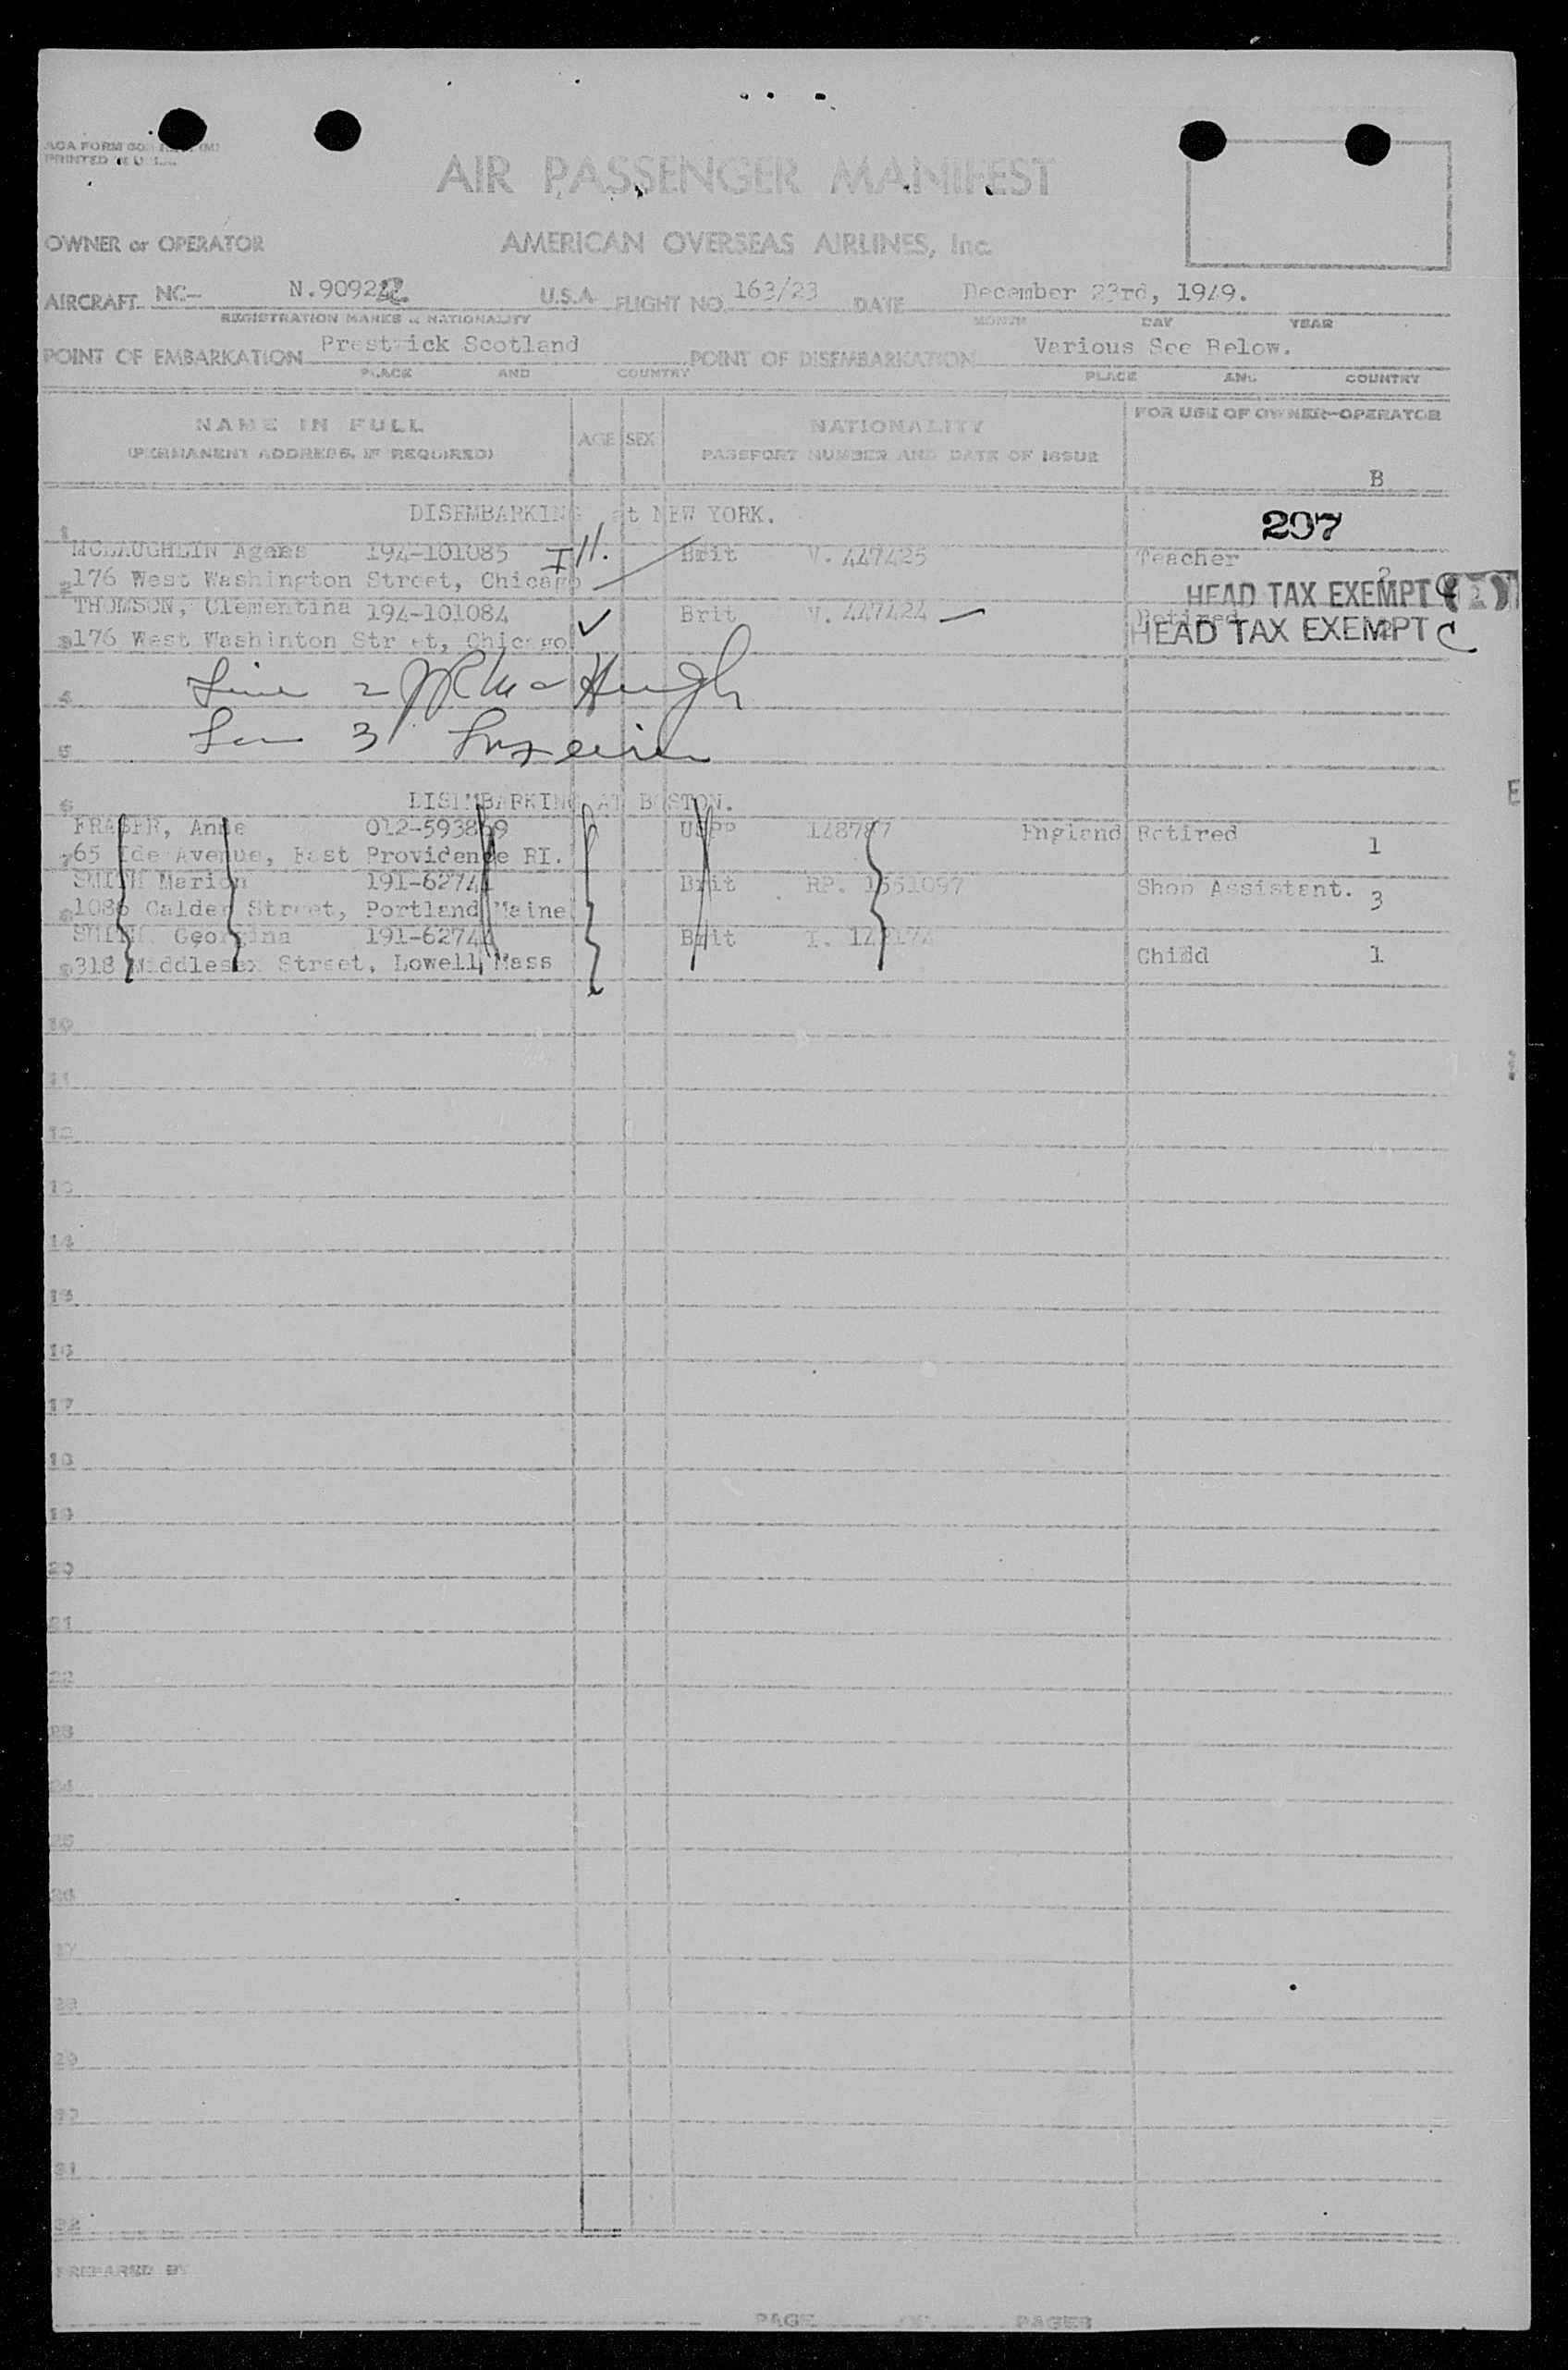 AIR PASSENGER MANIFEST
PRINTED IN U.S.A.
OWNER or OPERATOR AMERICAN OVERSEAS AIRLINES, Inc.
AIRCRAFT NC- N.90922 U.S.A. FLIGHT NO. 163/23 DATE December 23rd, 1949.
REGISTRATION MARKS & NATIONALITY MONTH DAY YEAR
POINT OF EMBARKATION Prestwick Scotland POINT OF DISEMBARKATION Various See Below.
PLACE AND COUNTRY PLACE AND COUNTRY
NAME IN FULL AGE SEX NATIONALITY FOR USE OF OWNER-OPERATOR
(PERMANENT ADDRESS, IF REQUIRED) PASSPORT NUMBER AND DATE OF ISSUE
B
DISEMBARKING at NEW YORK. 207
1
MCLAUGHLIN Agnes 194-101085 Brit V. 447425 Teacher
2 176 West Washington Street, Chicago HEAD TAX EXEMPT
THOMSON, Clementina 194-101084 Brit V. 447424 Retired
3 176 West Washinton Street, Chicago HEAD TAX EXEMPT C
4 Line 2
5 3
6 DISEMBARKING AT BOSTON.
FRASER, Anne 012-593869 USPP 148787 England Retired
7 65 Ide Avenue, East Providence RI. 1
SMITH Marion 191-62741 Brit RP. 1551097 Shop Assistant. 3
8 1086 Calder Street, Portland Maine
SMITH. Georgina 191-62744 Brit
9 318 Middlesex Street, Lowell Mass Child 1
10
11
12
13
14
15
16
17
18
19
20
21
22
23
24
25
26
27
28
29
30
31
32
PREPARED BY
PAGE OF PAGES